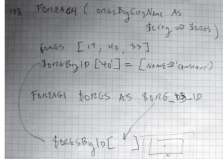 FOREACH ( $orgsByCityName AS
$city => $orgs)
$orgs [17, 40, 53]
$orgsById['40'] = [Name=>'
FOREACH $ORGS AS $ORG_ID
$orgsById[ ]